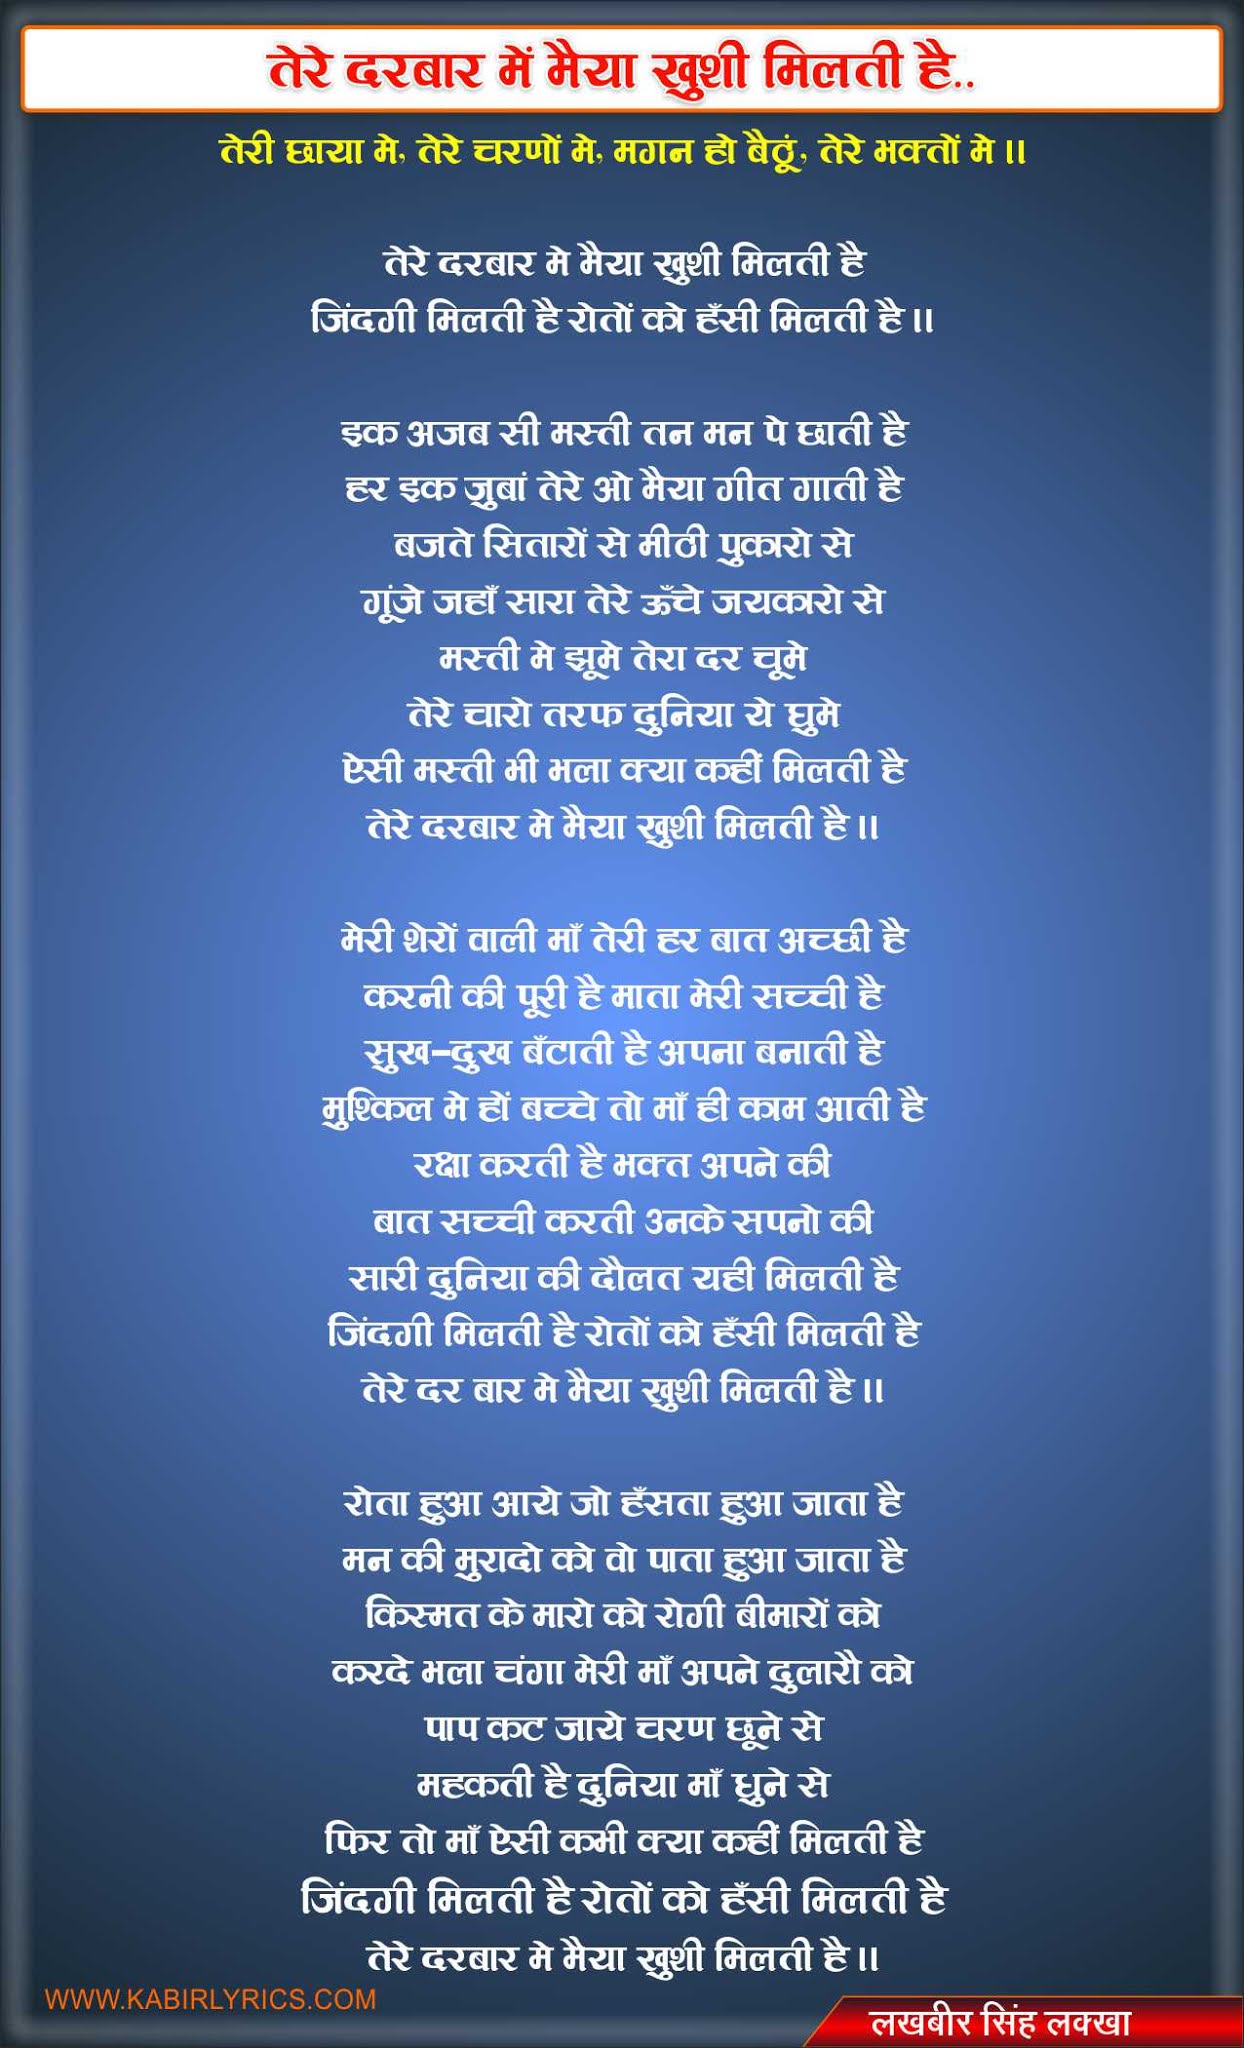 तेरे दरबार में मैया खुशी मिलती है..
तेरी छाया मे, तेरे चरणों मे, मगन हो बैठूं, तेरे भक्तों मे।।
तेरे दरबार मे मैया खुशी मिलती है
जिंदगी मिलती है रोतों को हँसी मिलती है।।
इक अजब सी मस्ती तन मन पे छाती है
हर इक जुबां तेरे ओ मैया गीत गाती है
बजते सितारों से मीठी पुकारो से
गूंजे जहाँ सारा तेरे ऊँचे जयकारो से
मस्ती मे झूमे तेरा दर चूमे
तेरे चारो तरफ दुनिया ये घुमे
ऐसी मस्ती भी भला क्या कहीं मिलती है
तेरे दरबार मे मैया खुशी मिलती है।।
मेरी शेरों वाली माँ तेरी हर बात अच्छी है
करनी की पूरी है माता मेरी सच्ची है
सुख-दुख बँटाती है अपना बनाती है
मुश्किल मे हों बच्चे तो माँ ही काम आती है
रक्षा करती है भक्त अपने की
बात सच्ची करती उनके सपनो की
सारी दुनिया की दौलत यही मिलती है
जिंदगी मिलती है रोतों को हँसी मिलती है
तेरे दर बार मे मैया खुशी मिलती है।।
रोता हुआ आये जो हँसता हुआ जाता है
मन की मुरादो को वो पाता हुआ जाता है
किस्मत के मारो को रोगी बीमारों को
करदे भला चंगा मेरी माँ अपने दुलारौ को
पाप कट जाये चरण छूने से
महकती है दुनिया माँ धुने से
फिर तो माँ ऐसी कभी क्या कहीं मिलती है
जिंदगी मिलती है रोतों को हँसी मिलती है
तेरे दरबार मे मैया खुशी मिलती है।।
WWW.KABIRLYRICS.COM
लखबीर सिंह लक्खा